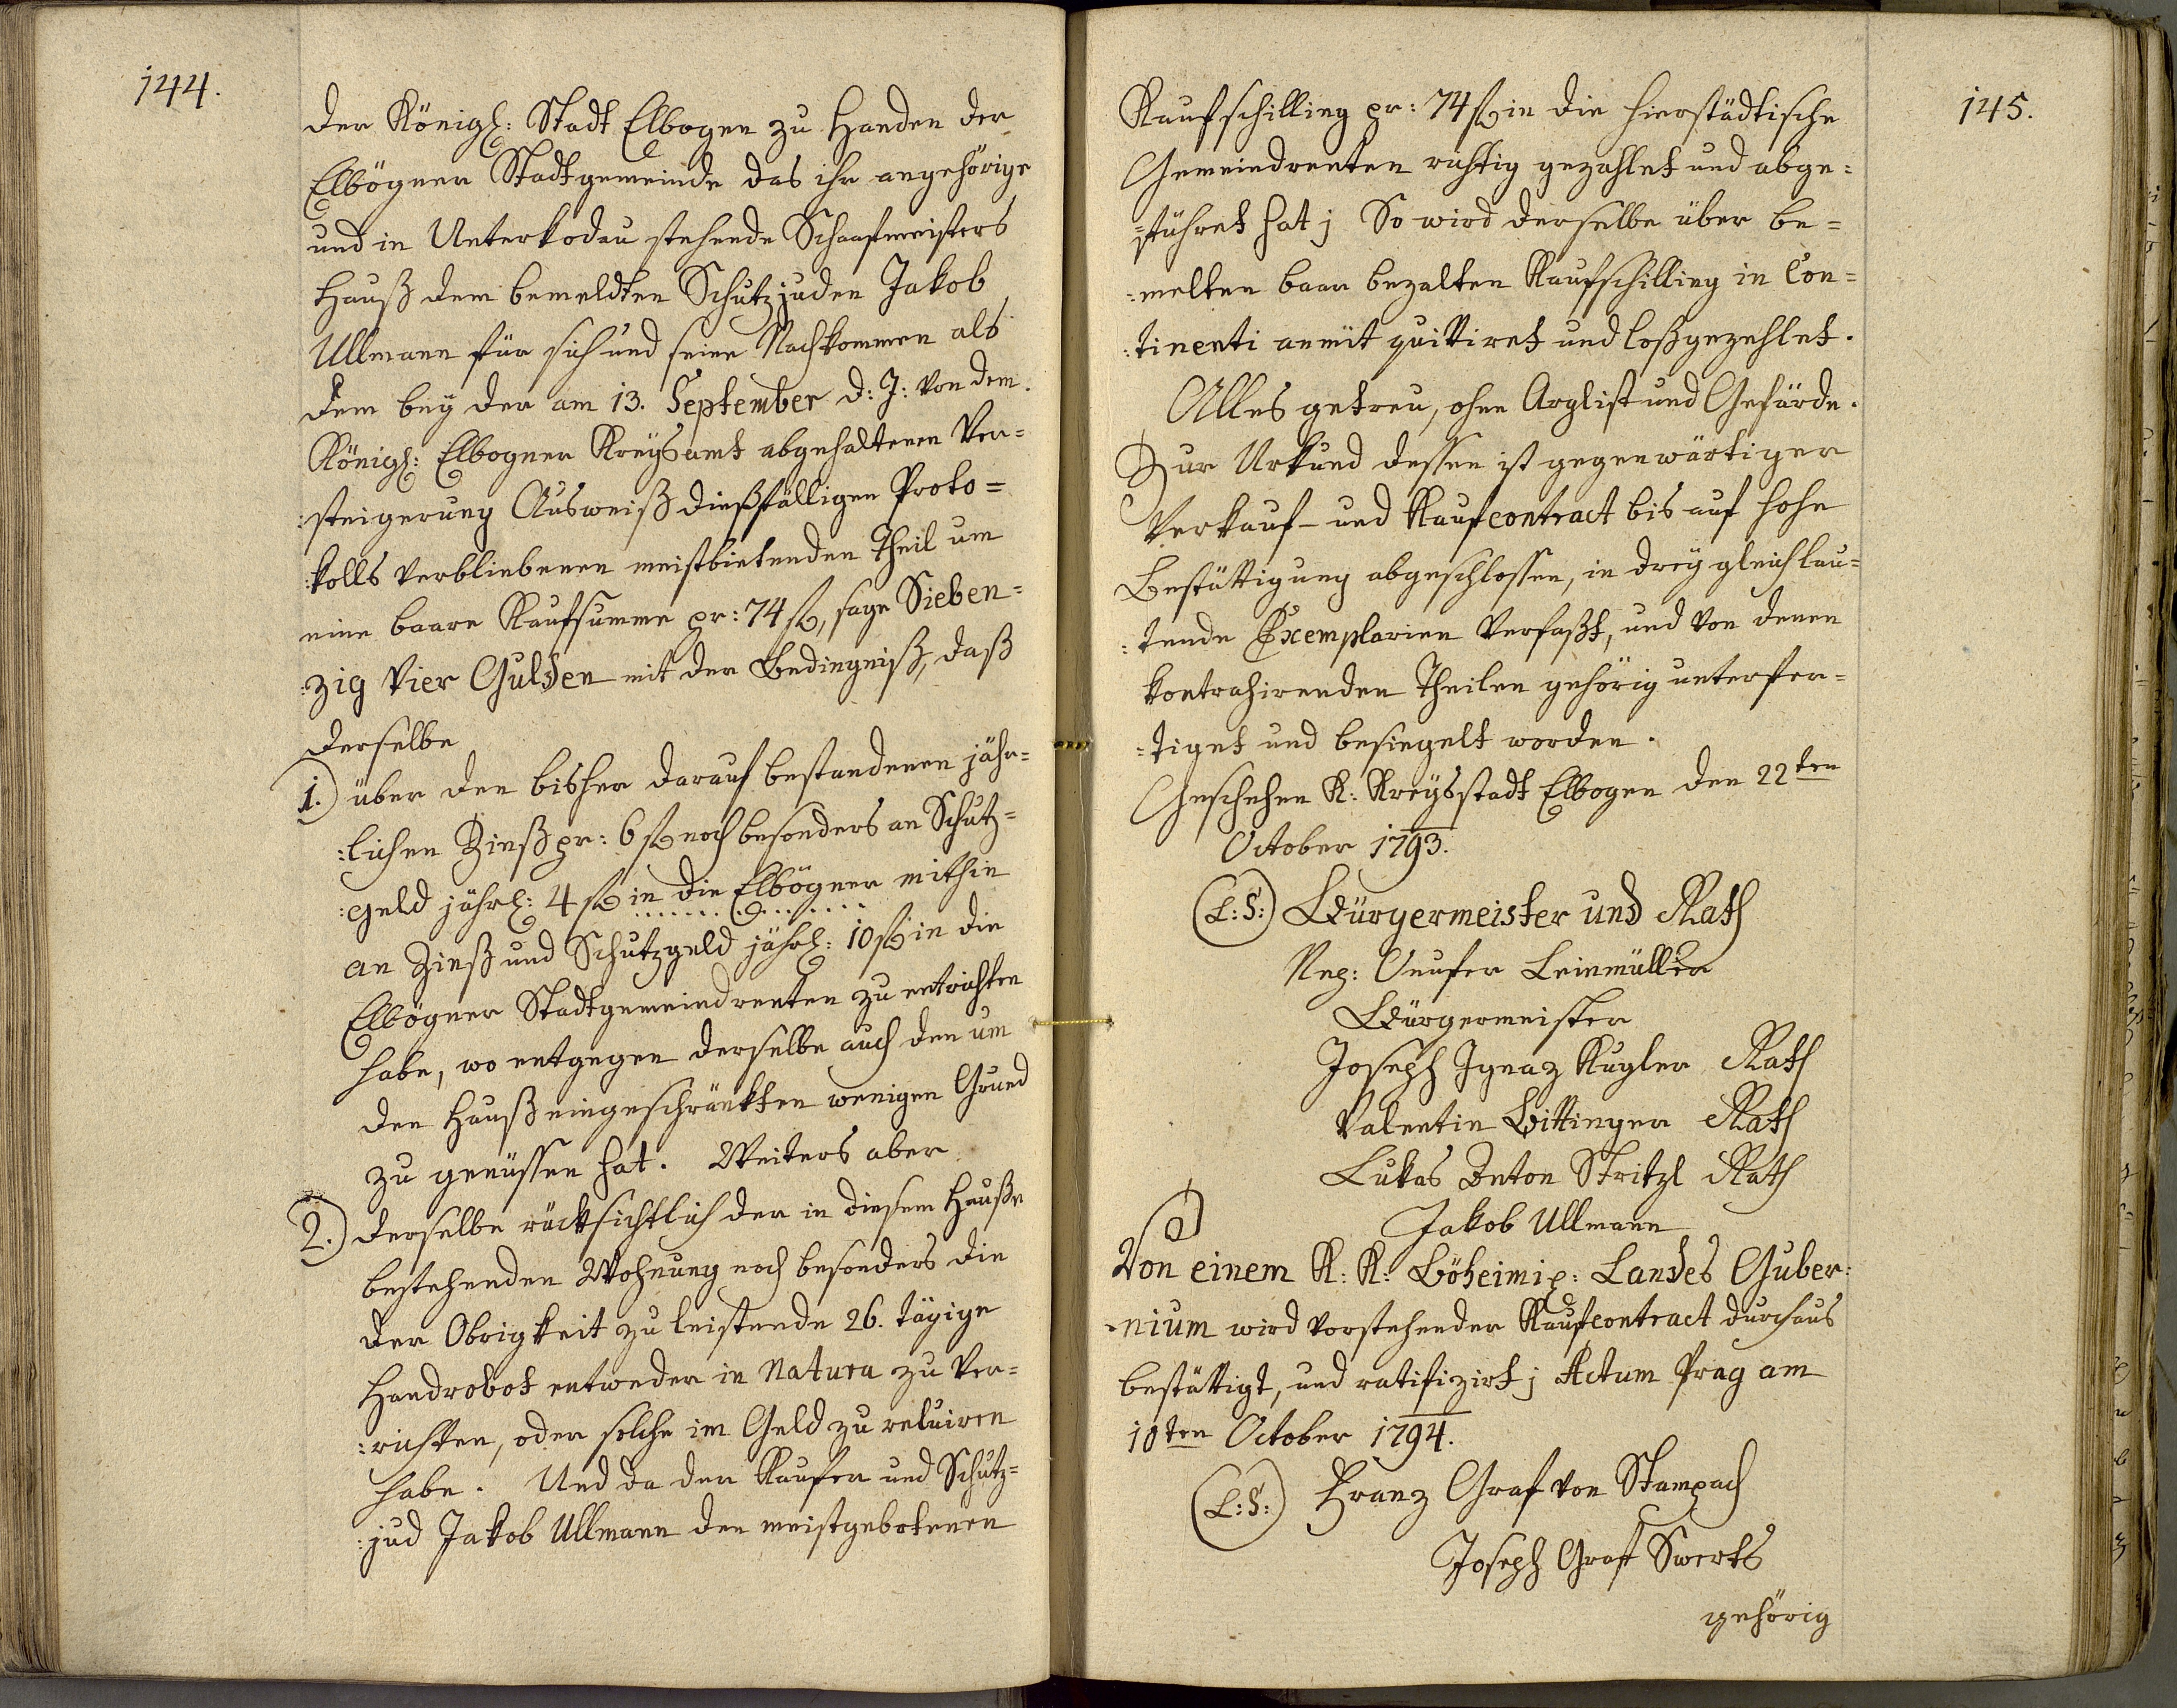 144.
der Königl: Stadt Elbogen zu Handen der
Elbögner Stadtgemeinde das ihr angehörige
und in Unterkodau stehende Schaafmeisters
Hauß dem bemeldten Schutzjuden Jakob
Ullmann für sich und seine Nachkommen als
dem bey der am 13. September d: J: von dem
Königl: Elbogner Kreysamt abgehaltenen Ver=
:steigerung Ausweiß dießfälligen Proto=
:kolls verbliebenen meistbietenden Theil um
eine baare Kaufsumme pr: 74 f, sage Sieben=
:zig Vier Gulden mit der Bedingniß, daß
derselbe
1.) über den bisher darauf bestandenen jähr=
:lichen Zinß pr: 6 f noch besonders an Schutz=
:geld jährl: 4 f in die Elbögner mithin
an Zinß und Schutzgeld jährl: 10 f in die
Elbögner Stadtgemeindrenten zu entrichten
habe, wo entgegen derselbe auch den um
den Hauß eingeschränkten wenigen Grund
zu genüssen hat. Weiters aber
2.) derselbe rücksichtlich der in diesem Hauße
bestehenden Wohnung noch besonders die
der Obrigkeit zu leistende 26. tägige
Handrobot entweder in Natura zu ver=
:richten, oder solche im Geld zu reluiren
habe. Und da der Kaufer und Schutz=
:jud Jakob Ullmann den meistgebotenen
145.
Kaufschilling pr: 74 f in die hierstädtische
Gemeindrenten richtig gezahlet und abge=
=führet hat; So wird derselbe über be=
:melten baar bezalten Kaufschilling in Con=
:tinenti anmit quittiret und loßgezehlet.
Alles getreu, ohne Arglist und Gefärde.
Zur Urkund dessen ist gegenwärtiger
Verkauf- und Kaufcontract bis auf hohe
Bestättigung abgeschlossen, in drey gleichlau=
:tende Exemplarien verfaßt, und von denen
kontrahirenden Theilen gehörig unterfer=
=tiget und besiegelt worden.
Geschehen K: Kreysstadt Elbogen den 22ten
October 1793.
(L:S:) Bürgermeister und Rath
Leinmüller
Bürgermeister
Joseph Ignaz Kugler Rath
Valentin Bittinger Rath
Lukas Anton Stritzl Rath
Jakob Ullmann
Von einem K: K: Böheimi: Landes Guber=
=nium wird vorstehender Kaufcontract durchaus
bestättigt, und ratifizirt; Actum Prag am
10ten October 1794.
(L:S:) Franz Graf von Stampach
Joseph Graf Swerts
gehörig